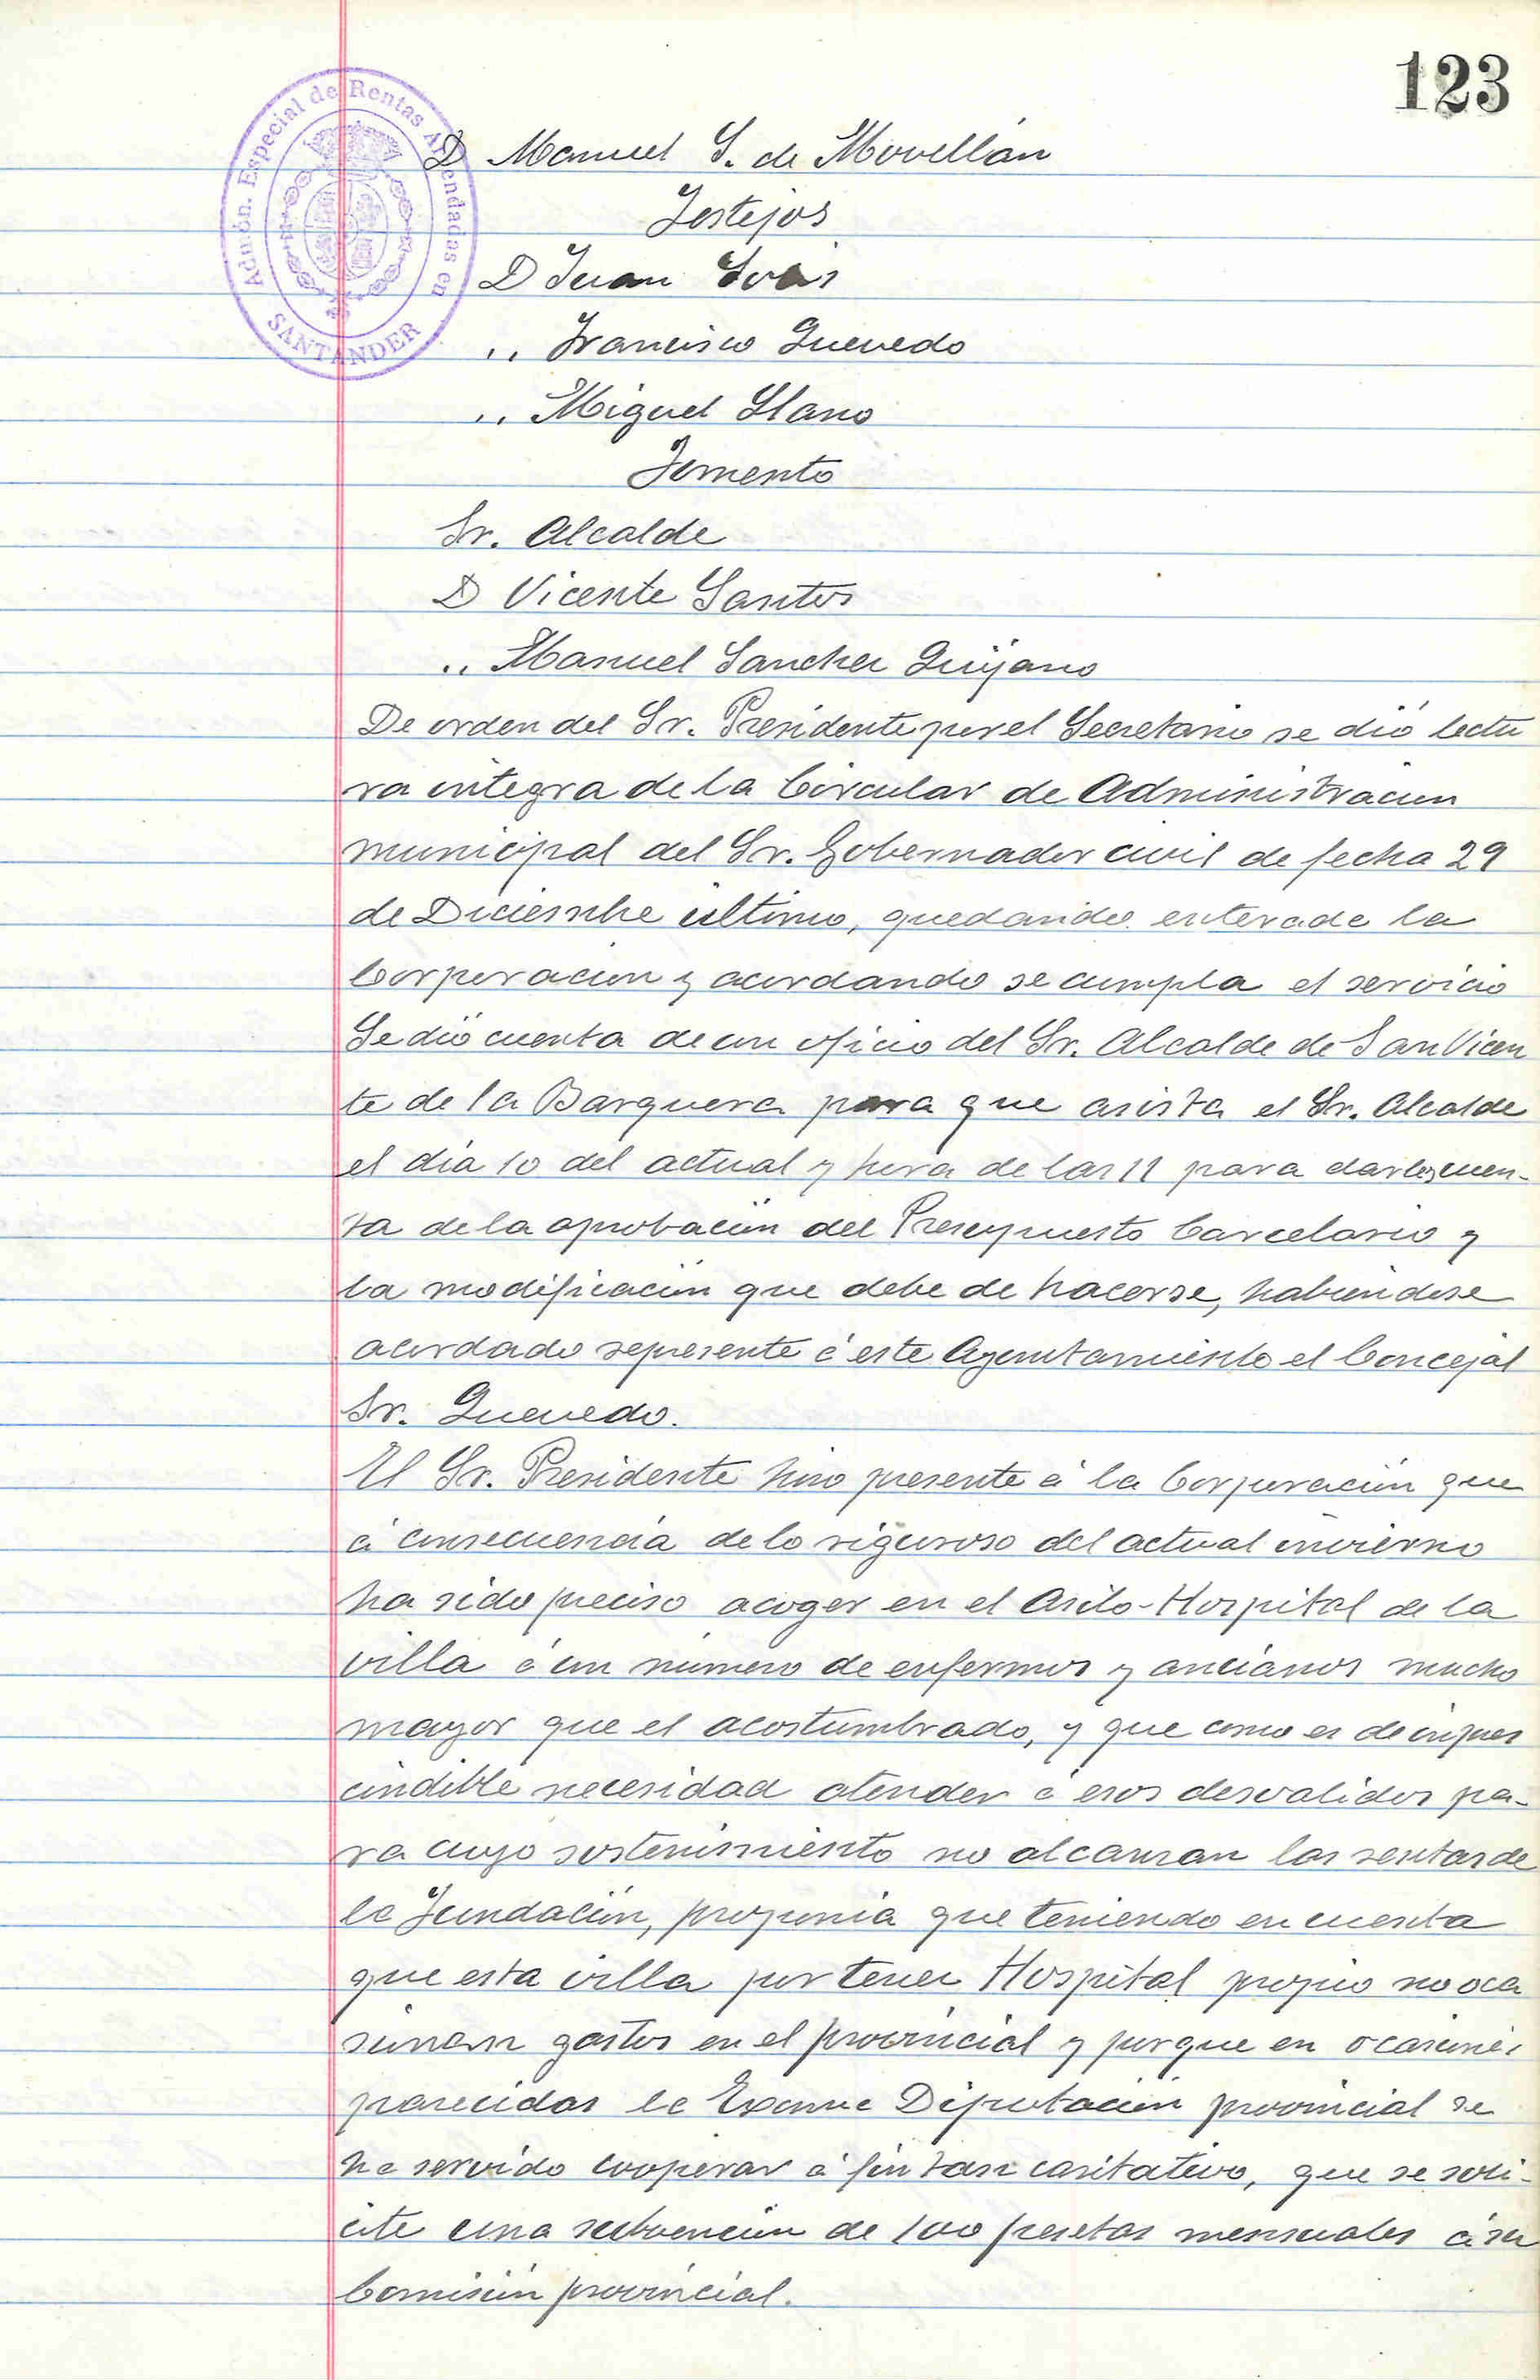 123
Admón. Especial de Rentas Arrendadas en
SANTANDER
D Manuel S. de Movellán
Festejos
D Juan
,, Francisco Quevedo
,, Miguel Llano
Fomento
Sr. Alcalde
D Vicente Santos
,, Manuel Sanchez Quijano
De orden del Sr. Presidente por el Secretario se dió lectu
ra integra de la Circular de Administración
municipal del Sr. Gobernador civil de fecha 29
de Diciembre último, quedando enterada la
Corporacion y acordando se cumpla el servicio
Se dió cuenta de un oficio del Sr. Alcalde de San Vicen
te de la Barquera para que asista el Sr. Alcalde
el día 10 del actual y hora de las 11 para darles cuen-
ta de la aprobación del Presupuesto Carcelario y
la modificación que debe de hacerse, habiendose
acordado represente á este Ayuntamiento el Concejal
Sr. Quevedo.
El Sr. Presidente hizo presente á la Corporación que
á consecuencia de lo riguroso del actual invierno
ha sido preciso acoger en el Asilo-Hospital de la
villa á un número de enfermos y ancianos mucho
mayor que el acostumbrado, y que como es de inpres
cindible necesidad atender á esos desvalidos pa-
ra cuyo sostenimiento no alcanzan las rentas de
la Fundación, proponia que teniendo en cuenta
que esta villa por tener Hospital propio no oca
sionan gastos en el provincial y porque en ocasiones
parecidas la Excma Diputación provincial se
ha servido cooperar á fin tan caritativo, que se soli-
cite una subvención de 100 pesetas mensuales á su
Comisión provincial.